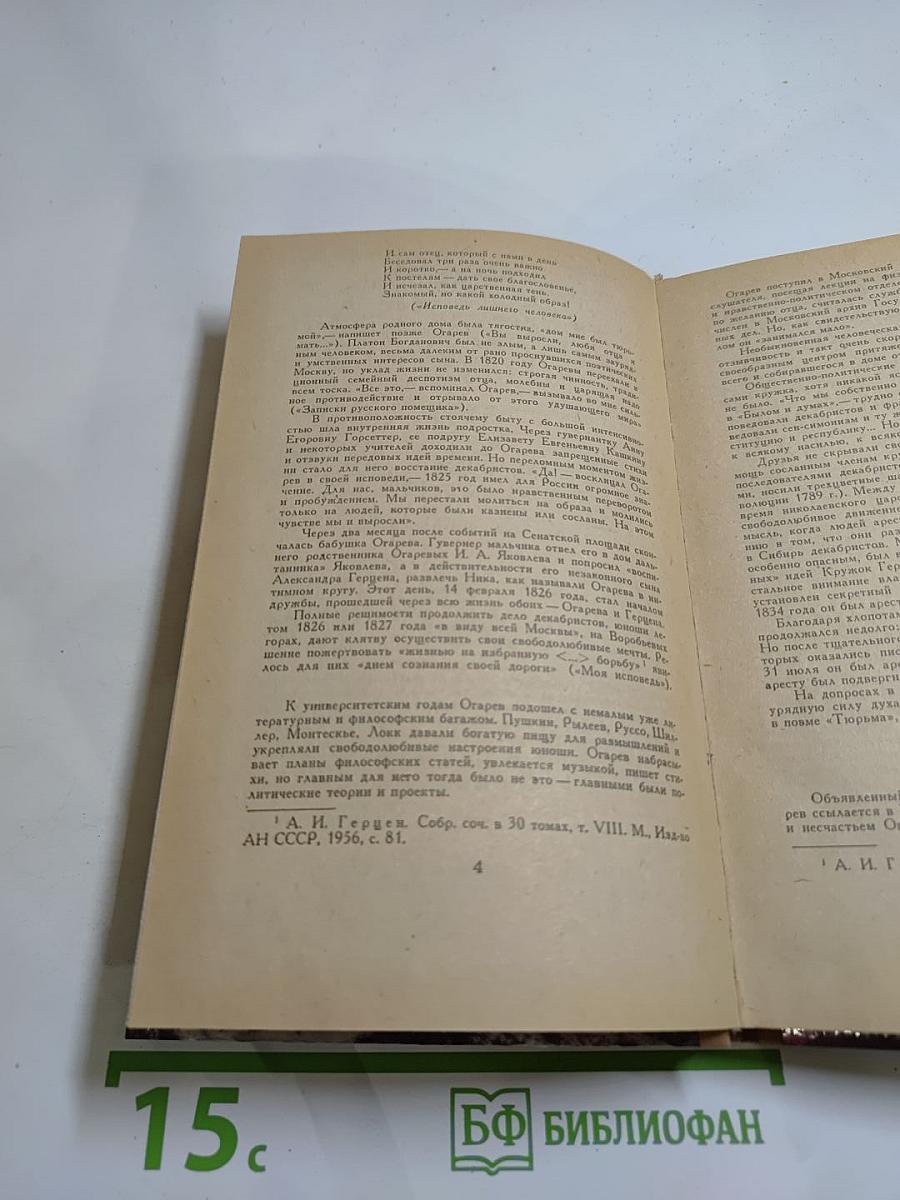 И сам отец, который с нами в день
Беседовал три раза очень важно
И коротко,— а на ночь подходил
К постелям — дать свое благословенье,
И исчезал, как царственная тень,
Знакомый, но какой холодный образ!
(«Исповедь лишнего человека»)
Атмосфера родного дома была тягостна, «дом мне был тюрь-
мой»,— напишет позже Огарев («Вы выросли, любя отца и
мать...»). Платон Богданович был не злым, а лишь самым зауряд-
ным человеком, весьма далеким от рано проснувшихся поэтических
и умственных интересов сына. В 1820 году Огаревы переехали в
Москву, но уклад жизни не изменился: строгая чинность, тради-
ционный семейный деспотизм отца, молебны и царящая надо
всем тоска. «Все это,— вспоминал Огарев,— вызывало во мне силь-
ное противодействие и отрывало от этого удушающего мира»
(«Записки русского помещика»).
В противоположность стоячему быту с большой интенсивно-
стью шла внутренняя жизнь подростка. Через гувернантку Анну
Егоровну Горсеттер, ее подругу Елизавету Евгеньевну Кашкину
и некоторых учителей доходили до Огарева запрещенные стихи
и отзвуки передовых идей времени. Но переломным моментом жиз-
ни стало для него восстание декабристов. «Да! — восклицал Ога-
рев в своей исповеди,— 1825 год имел для России огромное зна-
чение. Для нас, мальчиков, это было нравственным переворотом
и пробуждением. Мы перестали молиться на образа и молились
только на людей, которые были казнены или сосланы. На этом
чувстве мы и выросли».
Через два месяца после событий на Сенатской площади скон-
чалась бабушка Огарева. Гувернер мальчика отвел его в дом даль-
него родственника Огаревых И. А. Яковлева и попросил «воспи-
танника» Яковлева, а в действительности его незаконного сына
Александра Герцена, развлечь Ника, как называли Огарева в ин-
тимном кругу. Этот день, 14 февраля 1826 года, стал началом
дружбы, прошедшей через всю жизнь обоих — Огарева и Герцена.
Полные решимости продолжить дело декабристов, юноши ле-
том 1826 или 1827 года «в виду всей Москвы», на Воробьевых
горах, дают клятву осуществить свои свободолюбивые мечты. Ре-
шение пожертвовать «жизнью на избранную <...> борьбу» ¹ яви-
лось для них «днем сознания своей дороги» («Моя исповедь»).
К университетским годам Огарев подошел с немалым уже ли-
тературным и философским багажом. Пушкин, Рылеев, Руссо, Шил-
лер, Монтескье, Локк давали богатую пищу для размышлений и
укрепляли свободолюбивые настроения юноши. Огарев набрасы-
вает планы философских статей, увлекается музыкой, пишет сти-
хи, но главным для него тогда было не это — главными были по-
литические теории и проекты.
¹ А. И. Герцен. Собр. соч. в 30 томах, т. VIII. М., Изд-во
АН СССР, 1956, с. 81.
4
Огарев поступил в Московский
слушателя, посещая лекции на физ
и нравственно-политическом отделе
по желанию отца, считалась служ
числен в Московский архив Госу
ных дел. Но, как свидетельствую
лом он «занимался мало».
Необыкновенная человеческа
отзывчивость и такт очень скор
своеобразным центром притяже
всего и собиравшегося в доме от
Общественно-политические
сами кружка, хотя никакой ис
не было. «Что мы собственно
в «Былом и думах»,— трудно с
поведовали декабристов и фр
ведовали сен-симонизм и ту ж
ституцию и республику... Но
к всякому насилью, к всяко
Друзья не скрывали сво
мощь сосланным членам кру
последователями декабрист
ми, носили трехцветные ша
волюции 1789 г.). Между
время николаевского царс
свободолюбивое движение
мысль, когда людей арес
нию в том, что они раз
в Сибирь декабристов. М
особенно опасным, был в
ных» идей Кружок Гер
стальное внимание вла
установлен секретный
1834 года он был арест
Благодаря хлопотам
продолжался недолго:
Но после тщательного
торых оказались пис
31 июля он был аре
аресту был подвергн
На допросах в
урядную силу духа
в поэме «Тюрьма»,
Объявленный
рев ссылается в
и несчастьем Ог
¹ А. И. Г
15 с
БФ БИБЛИОФАН